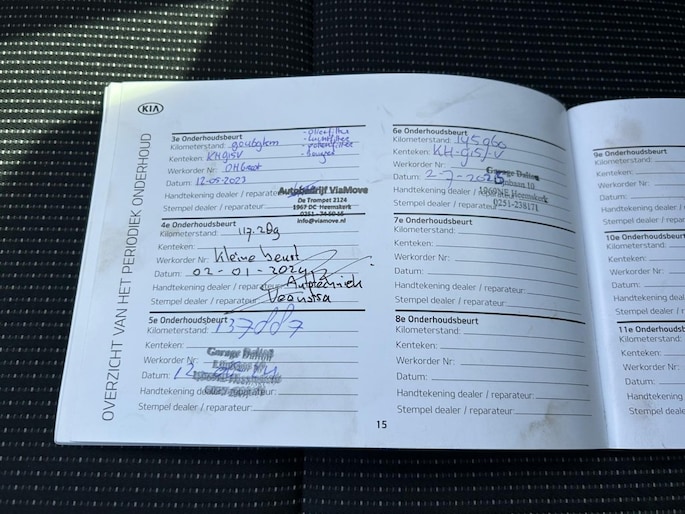 KIA
OVERZICHT VAN HET PERIODIEK ONDERHOUD
3e Onderhoudsbeurt
Kilometerstand:
- oliefilter
- luchtfilter
Kenteken: KH915V
Werkorder Nr:
Datum: 12-05-2023
Handtekening dealer / reparateur:
Stempel dealer / reparateur:
Autobedrijf ViaMove
De Trompet 2124
1967 DC Heemskerk
info@viamove.nl
4e Onderhoudsbeurt
Kilometerstand: 117.289
Kenteken:
Werkorder Nr: Kleine beurt
Datum: 02-01-2024
Handtekening dealer / reparateur: Autotechniek
Stempel dealer / reparateur:
5e Onderhoudsbeurt
Kilometerstand:
Kenteken:
Werkorder Nr:
Garage
Datum:
Handtekening dealer / reparateur:
Stempel dealer / reparateur:
6e Onderhoudsbeurt
Kilometerstand:
Kenteken: KH-915-V
Werkorder Nr:
Datum:
Garage
Handtekening dealer / reparateur:
Stempel dealer / reparateur:
Heemskerk
0251-238171
7e Onderhoudsbeurt
Kilometerstand:
Kenteken:
Werkorder Nr:
Datum:
Handtekening dealer / reparateur:
Stempel dealer / reparateur:
8e Onderhoudsbeurt
Kilometerstand:
Kenteken:
Werkorder Nr:
Datum:
Handtekening dealer / reparateur:
Stempel dealer / reparateur:
15
9e Onderhoudsb
Kilometerstand:
Kenteken:
Werkorder Nr:
Datum:
Handtekening deale
Stempel dealer / r
10e Onderhoudsb
Kilometerstand:
Kenteken:
Werkorder Nr:
Datum:
Handtekening dea
Stempel dealer /
11e Onderhouds
Kilometerstand:
Kenteken:
Werkorder Nr:
Datum:
Handtekening
Stempel deale